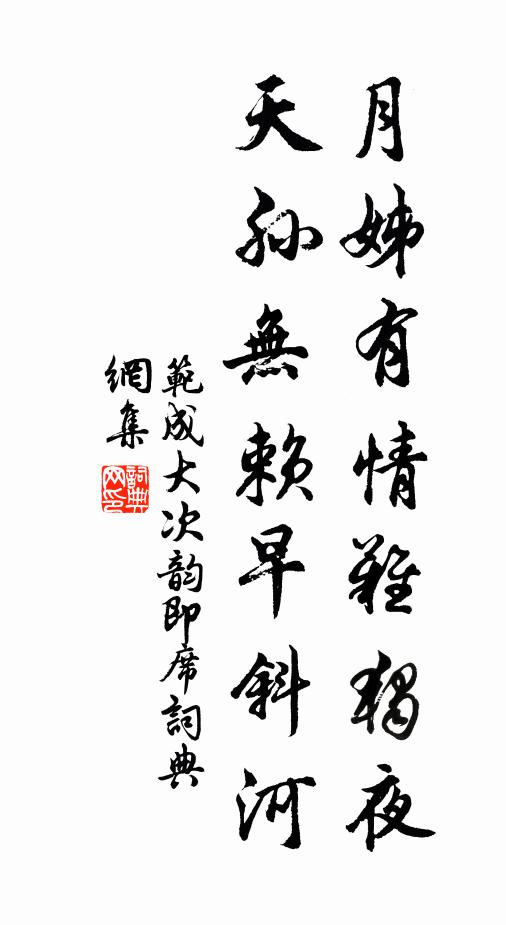 月姊有情難獨夜
天孫無賴早斜河
範成大次韵即席詞典
網集
詞典網印